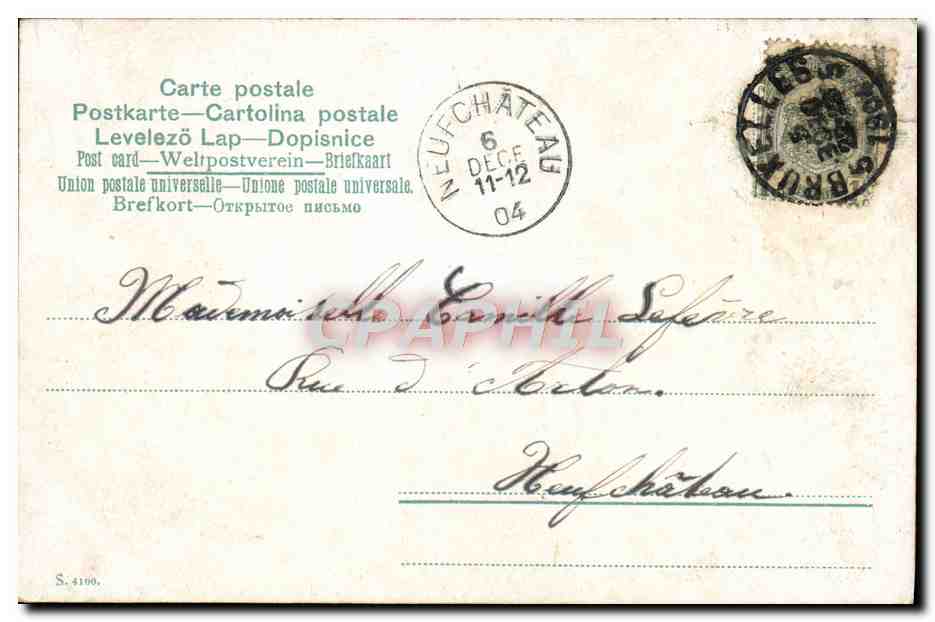 Carte postale
Postkarte—Cartolina postale
Levelező Lap—Dopisnice
Post card—Weltpostverein—Briefkaart
Union postale universelle—Unione postale universale.
Brefkort—Открытое письмо
NEUFCHÂTEAU
6
DECE
11-12
04
BRUXELLES 5
1904
Mademoiselle Camille Lefèvre
CPAPHIL
Rue d'Arlon.
Neufchâteau.
S. 4100.